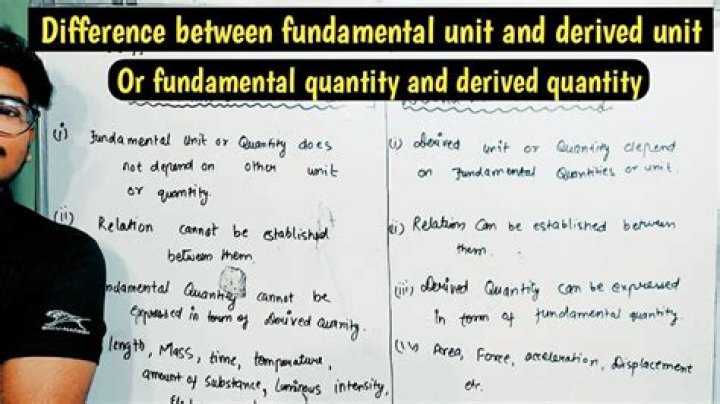 Difference between fundamental unit and derived unit
Or fundamental quantity and derived quantity
(i) Fundamental Unit or Quantity does
not depend on other unit
or quantity.
(ii) Relation cannot be established
between them.
ndamental Quantity cannot be
expressed in term of Derived Quantity.
length, Mass, time, temperature,
amount of substance, Luminous intensity,
(i) Derived unit or Quantity depend
on Fundamental Quantities or unit.
(ii) Relation Can be established between
them.
(iii) Derived Quantity can be expressed
In term of fundamental quantity.
(iv) Area, Force, acceleration, Displacement
etc.